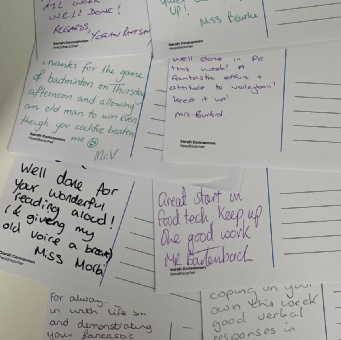 ALL WORK
WELL DONE!
REGARDS,
Sarah Donnannon
Headteacher
UP!
Miss Bourke.
Sarah Donnannon
Headteacher
Thanks for the game
of badminton on Thursday
afternoon and allowing
an old man to win even
though you could've beaten
me
Mr. V
well done in PE
this week! A
fantastic effort &
attitude to
keep it up!
Mrs.
Sarah Donnannon
Headteacher
Well done for
your wonderful
reading aloud!
(& giving my
old voice a break)
Miss
Headteacher
Great start in
food tech, keep up
the good work
Mr
Sarah Donnannon
Headteacher
For always
in with life
and demonstrating
your fantastic
coping on your
own this week
good verbal
responses in